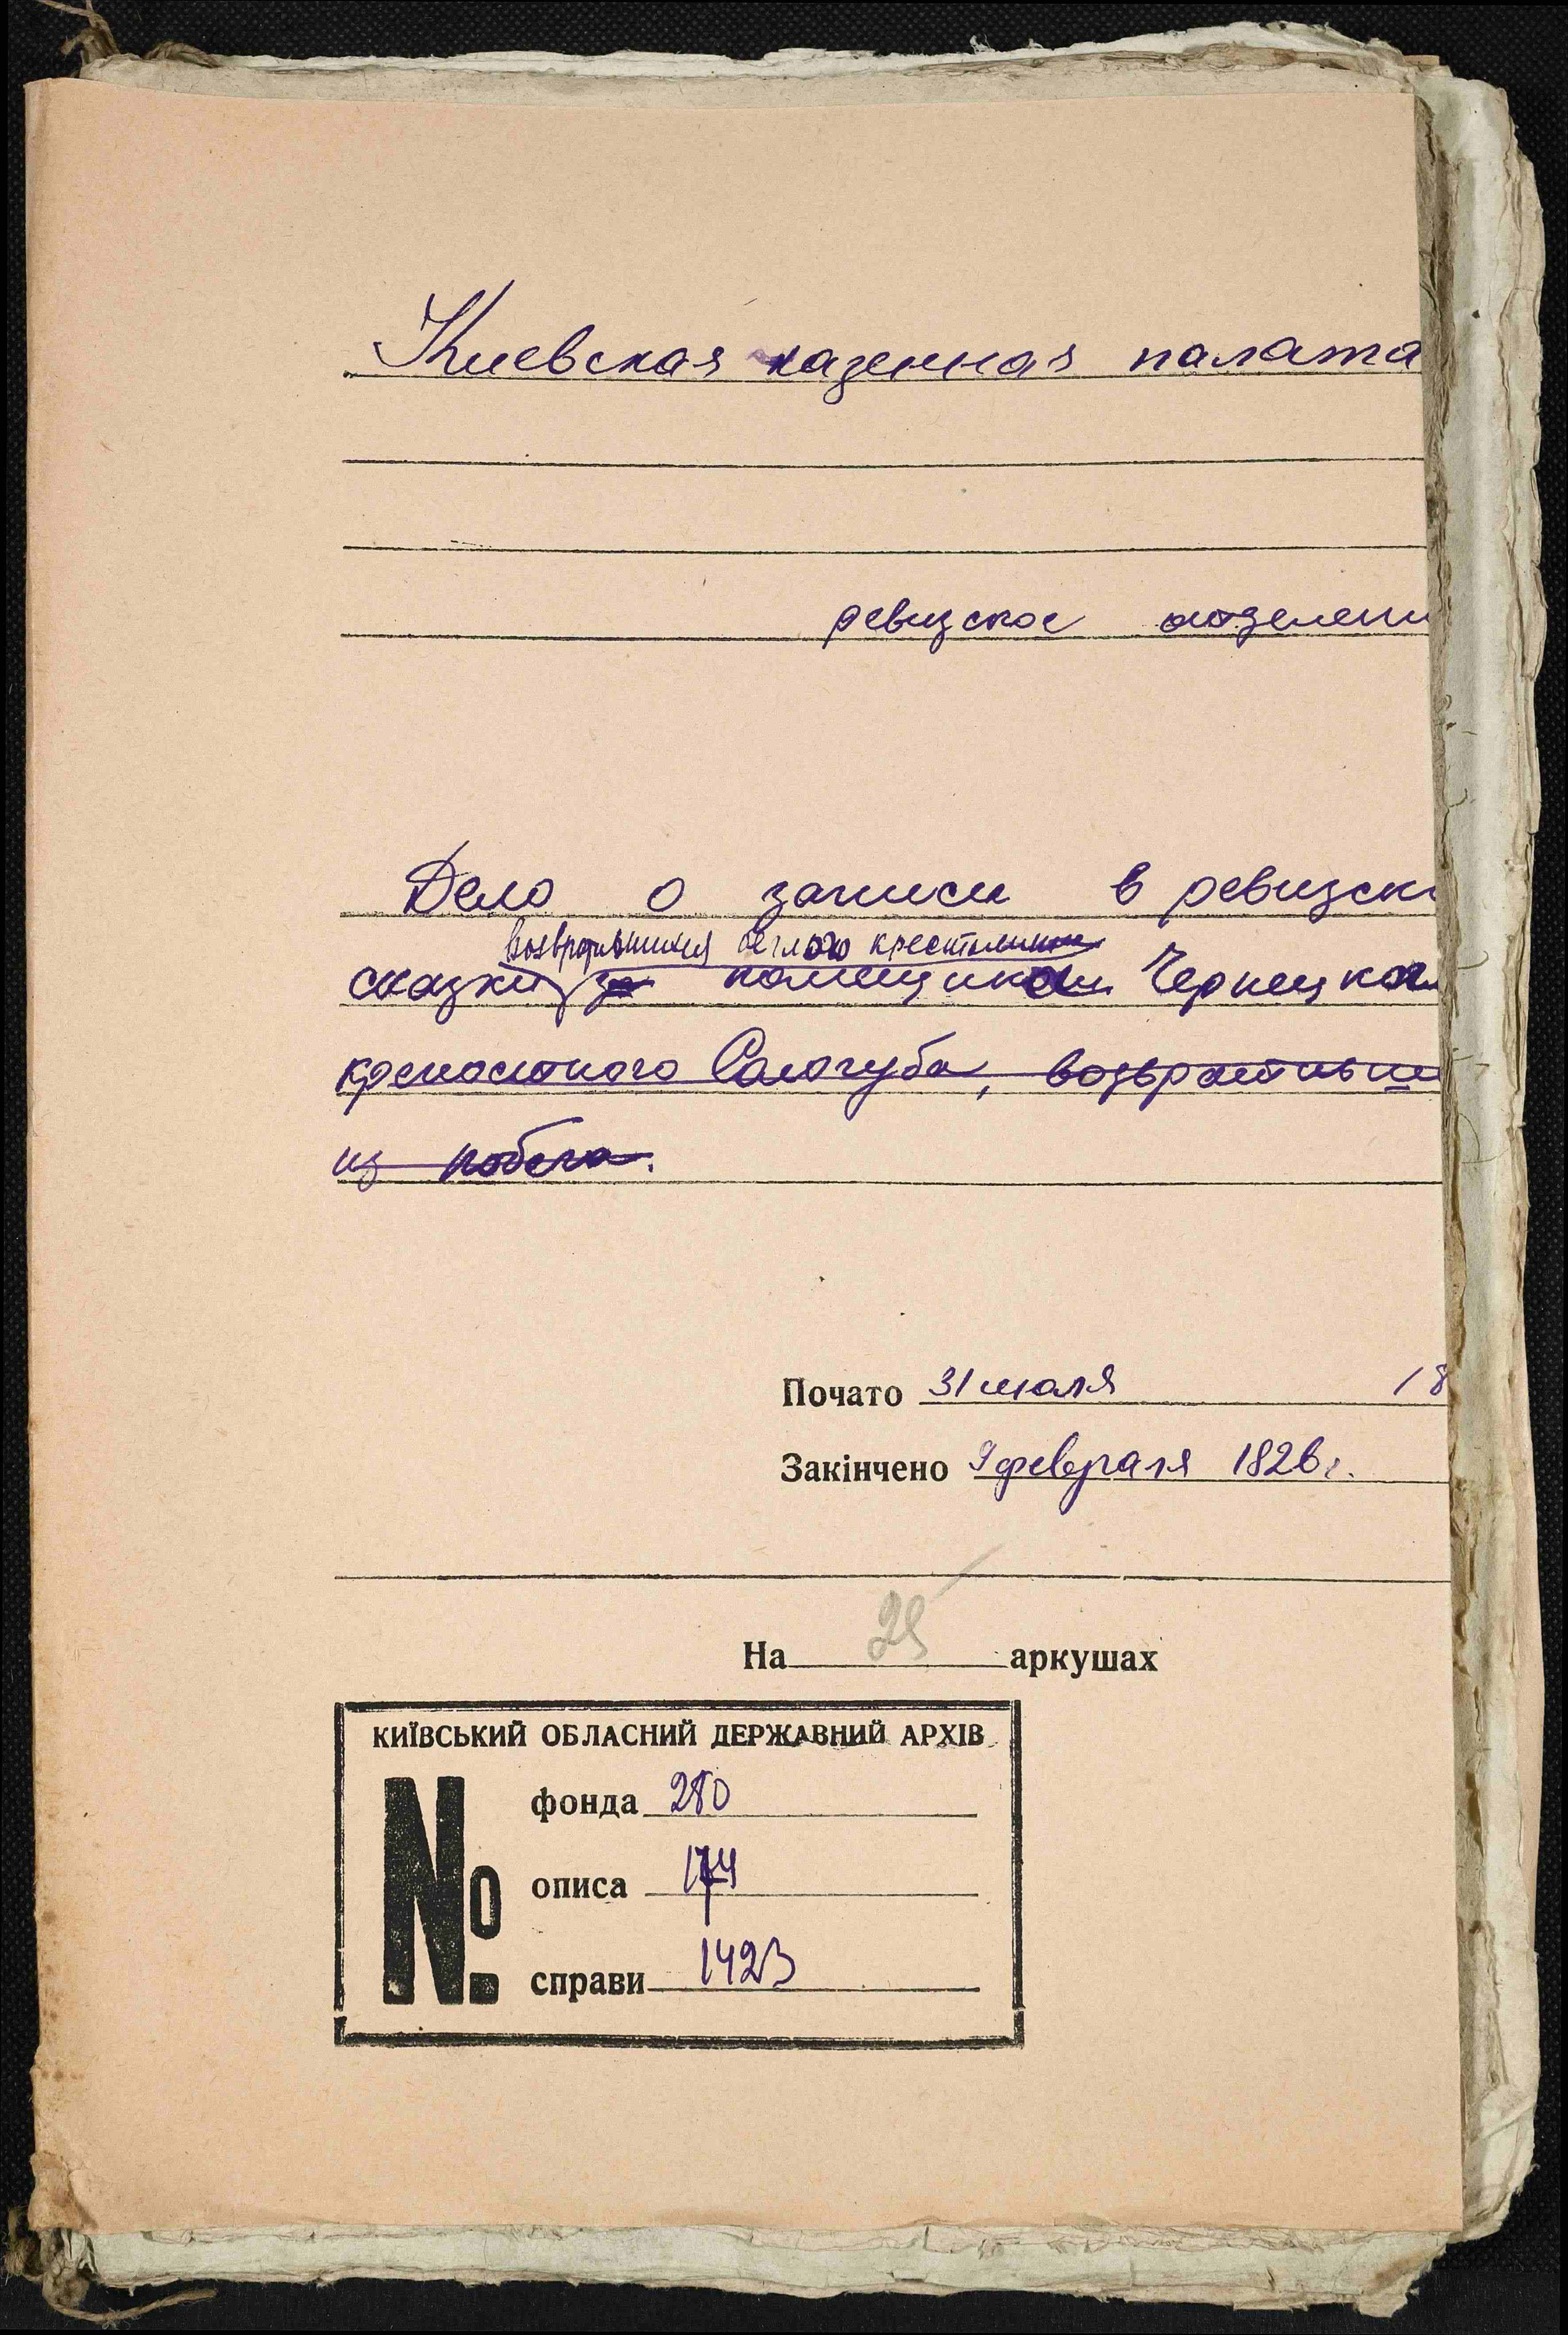 Киевская казенная палата
ревизское отделени
Дело о записи в ревизск
возвратившихся беглого крестьянина
сказки за помещиком Чернецког
крепостного Сологуба, возвративше
из побега.
Почато 31 июля 18
Закінчено 9 февраля 1826 г.
На 25 аркушах
КИЇВСЬКИЙ ОБЛАСНИЙ ДЕРЖАВНИЙ АРХІВ
№
фонда 280
описа 174
справи 1423